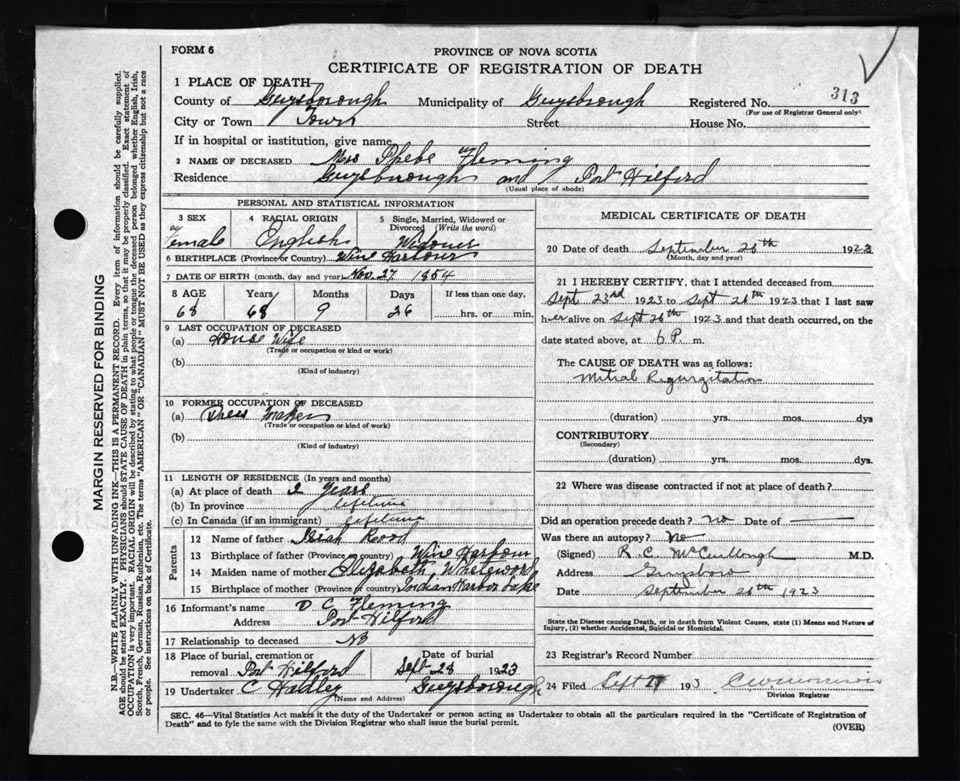 FORM 6
PROVINCE OF NOVA SCOTIA
CERTIFICATE OF REGISTRATION OF DEATH
313
1 PLACE OF DEATH
County of Guysborough Municipality of Guysborough Registered No.
(For use of Registrar General only)
City or Town Town Street House No.
If in hospital or institution, give name
2 NAME OF DECEASED Mrs Phebe Fleming
Residence Guysborough and Port Hilford
(Usual place of abode)
PERSONAL AND STATISTICAL INFORMATION
3 SEX 4 RACIAL ORIGIN 5 Single, Married, Widowed or Divorced (Write the word)
Female English Widower
6 BIRTHPLACE (Province or Country) Wine Harbour
7 DATE OF BIRTH (month, day and year) Nov. 27 1854
8 AGE Years Months Days If less than one day,
68 68 9 26 hrs. or min.
9 LAST OCCUPATION OF DECEASED
(a) House Wife
(Trade or occupation or kind or work)
(b)
(Kind of industry)
10 FORMER OCCUPATION OF DECEASED
(a) Dress maker
(Trade or occupation or kind of work)
(b)
(Kind of industry)
11 LENGTH OF RESIDENCE (In years and months)
(a) At place of death 2 Years
(b) In province lifetime
(c) In Canada (if an immigrant) lifetime
Parents
12 Name of father Isiah Rood
13 Birthplace of father (Province or country) Wine Harbour
14 Maiden name of mother Elizabeth
15 Birthplace of mother (Province or country) Indian Harbor Lake
16 Informant's name D C Fleming
Address Port Hilford
17 Relationship to deceased
18 Place of burial, cremation or removal Port Hilford Date of burial Sept 28 1923
19 Undertaker C Hadley Guysborough
(Name and Address)
MEDICAL CERTIFICATE OF DEATH
20 Date of death September 26th 1923
(Month, day and year)
21 I HEREBY CERTIFY, that I attended deceased from
Sept 23rd 1923 to Sept 26th 1923 that I last saw
her alive on Sept 26th 1923 and that death occurred, on the
date stated above, at 6 P. m.
The CAUSE OF DEATH was as follows:
Mitral Regurgitation
(duration) yrs. mos. dys
CONTRIBUTORY
(Secondary)
(duration) yrs. mos. dys.
22 Where was disease contracted if not at place of death?
Did an operation precede death? No Date of
Was there an autopsy? No
(Signed) R. C. McCullough M.D.
Address Guysboro
Date September 26th 1923
State the Disease causing Death, or in death from Violent Causes, state (1) Means and Nature of
Injury, (2) whether Accidental, Suicidal or Homicidal.
23 Registrar's Record Number
24 Filed Sept 27 193
Division Registrar
SEC. 46—Vital Statistics Act makes it the duty of the Undertaker or person acting as Undertaker to obtain all the particulars required in the "Certificate of Registration of
Death" and to fyle the same with the Division Registrar who shall issue the burial permit.
(OVER)
MARGIN RESERVED FOR BINDING
N.B.—WRITE PLAINLY WITH UNFADING INK—THIS IS A PERMANENT RECORD. Every item of information should be carefully supplied.
AGE should be stated EXACTLY. PHYSICIANS should STATE CAUSE OF DEATH in plain terms, so that it may be properly classified. Exact statement of
OCCUPATION is very important. RACIAL ORIGIN will be described by stating to what people or tongue the deceased person belonged whether English, Irish,
Scotch, French, German, Russian, Ruthenian, etc. The terms "AMERICAN" OR "CANADIAN" MUST NOT BE USED as they express citizenship but not a race
or people. See instructions on back of Certificate.